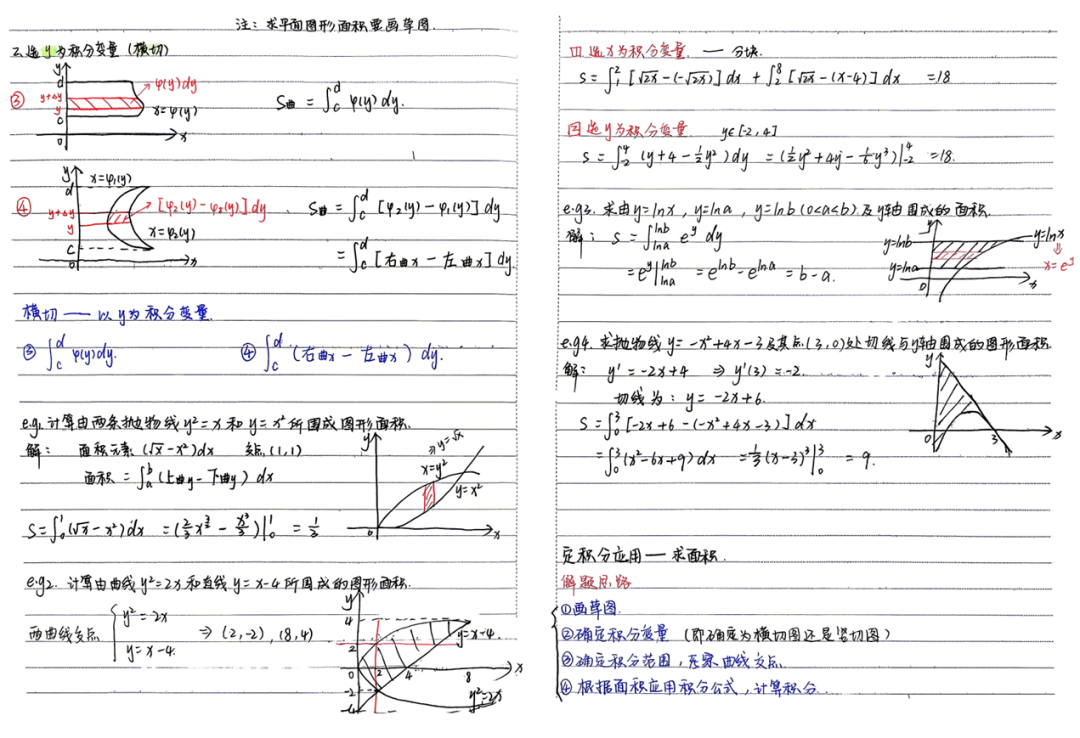 注：求平面图形面积要画草图.
2.选y为积分变量（横切）
③ y d y+Δy y c 0 x φ(y)dy x=φ(y) S曲 = ∫_c^d φ(y)dy.
④ y d y+Δy y c 0 x x=φ₁(y) [φ₂(y)-φ₁(y)]dy x=φ₂(y) S曲 = ∫_c^d [φ₂(y)-φ₁(y)]dy
= ∫_c^d [右曲x-左曲x]dy
横切 —— 以y为积分变量.
③ ∫_c^d φ(y)dy. ④ ∫_c^d (右曲x-左曲x)dy.
e.g1.计算由两条抛物线y²=x和y=x²所围成图形面积.
解： 面积元素(√x-x²)dx 结点(1,1)
面积 = ∫_a^b (上曲y-下曲y)dx
S=∫_0^1 (√x-x²)dx =(2/3 x^{3/2} - x³/3)|_0^1 = 1/3
y ⇒y=√x x=y² y=x² 0 x
e.g2. 计算由曲线y²=2x和直线y=x-4所围成的图形面积.
两曲线交点 { y²=2x y=x-4 ⇒ (2,-2),(8,4)
y 4 2 0 -2 -4 2 4 8 x y=x-4. y²=2x
(1).选x为积分变量. — 分块.
S=∫_1^2 [√2x-(-√2x)]dx + ∫_2^8 [√2x-(x-4)]dx =18
(2)选y为积分变量. y∈[-2,4]
S=∫_{-2}^4 (y+4-½y²)dy =(½y²+4y-1/6y³)|_{-2}^4 =18.
e.g3. 求由y=lnx，y=lna，y=lnb(0<a<b)及y轴围成的面积.
解： S=∫_{lna}^{lnb} e^y dy
= e^y|_{lna}^{lnb} = e^{lnb}-e^{lna} = b-a.
y y=lnb y=lna 0 x y=lnx ⇓ x=e^y
e.g4. 求抛物线y=-x²+4x-3及其点(3,0)处切线与y轴围成的图形面积
解： y'=-2x+4 ⇒y'(3)=-2.
切线为：y=-2x+6.
S=∫_0^3 [-2x+6-(-x²+4x-3)]dx
=∫_0^3 (x²-6x+9)dx =1/3(x-3)³|_0^3 = 9.
y 0 3 x
定积分应用 — 求面积.
解题思路
①画草图.
②确定积分变量（即确定为横切图还是竖切图）
③确定积分范围，系察曲线交点.
④根据面积应用积分公式，计算积分.